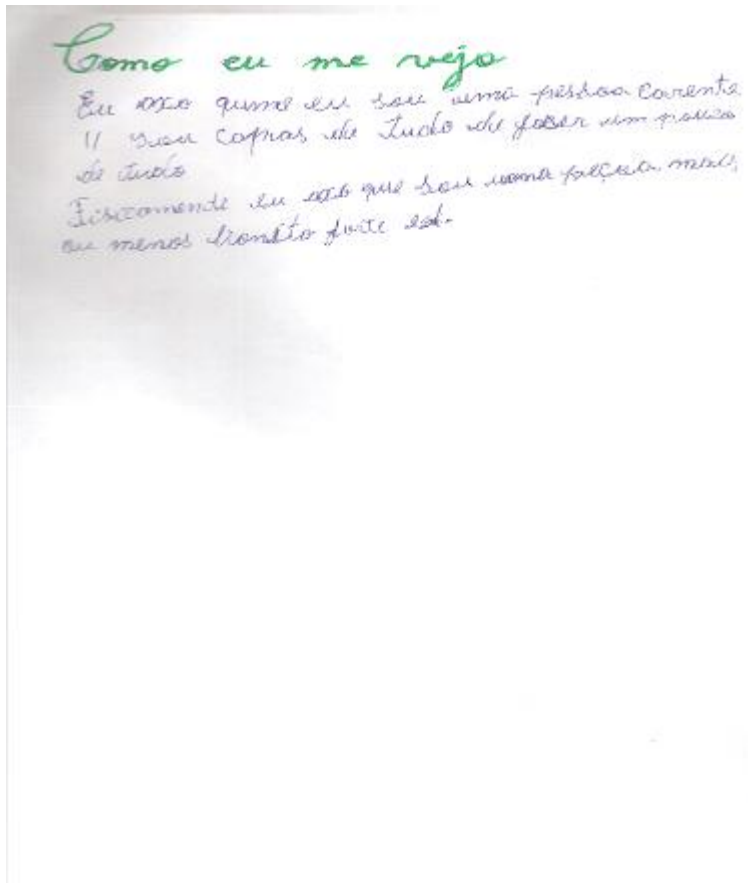 Como eu me vejo
Eu axo qume eu sou uma pessoa carente
11 sou capras de tudo de faser um pouco
de tudo
Fisicamende eu axo que sou uma peçua mais
ou menos bonito forte